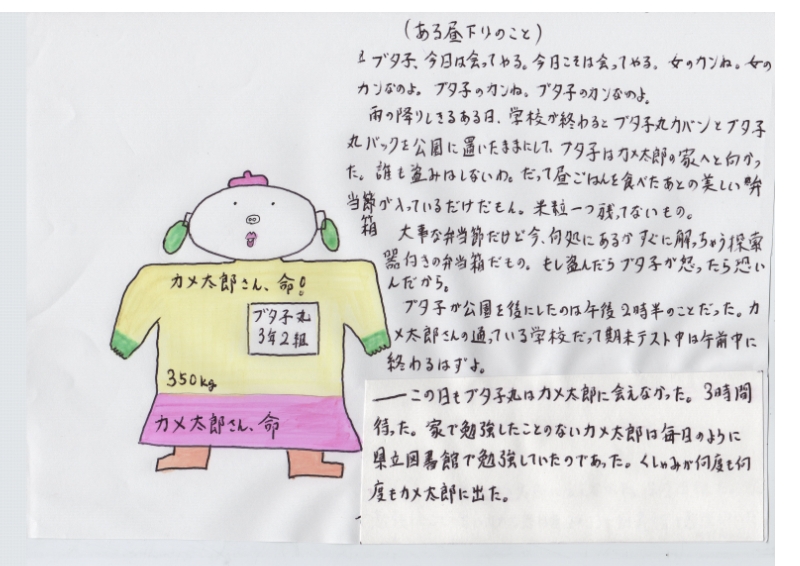 (ある昼下りのこと)
ブタ子、今日は会ってやる。今日こそは会ってやる。女のカンね。女の
カンなのよ。ブタ子のカンね。ブタ子のカンなのよ。
雨の降りしきるある日、学校が終わるとブタ子丸カバンとブタ子
丸バックを公園に置いたままにして、ブタ子はカメ太郎の家へと向かっ
た。誰も盗みはしないわ。だって昼ごはんを食べたあとの美しい弁
当節が入っているだけだもん。米粒一つ残ってないもの。
箱
大事な弁当節だけど今、何処にあるかすぐに解っちゃう探索
器付きの弁当箱だもの。もし盗んだらブタ子が怒ったら恐い
んだから。
ブタ子が公園を後にしたのは午後2時半のことだった。カ
メ太郎さんの通っている学校だって期末テスト中は午前中に
終わるはずよ。
――この日もブタ子丸はカメ太郎に会えなかった。3時間
待った。家で勉強したことのないカメ太郎は毎日のように
県立図書館で勉強していたのであった。くしゃみが何度も何
度もカメ太郎に出た。
カメ太郎さん、命!
ブタ子丸
3年2組
350kg
カメ太郎さん、命